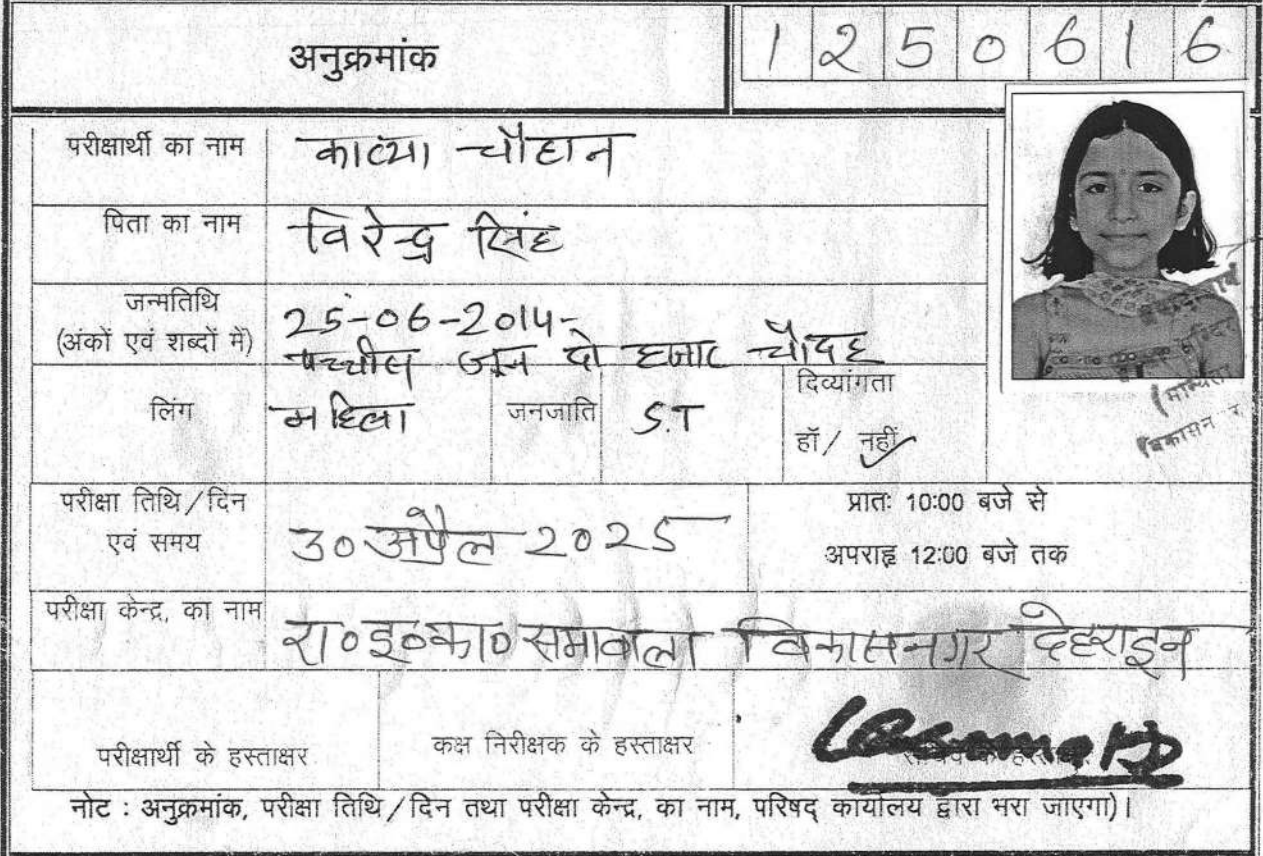 अनुक्रमांक 1 2 5 0 6 1 6
परीक्षार्थी का नाम काव्या चौहान
पिता का नाम विरेन्द्र सिंह
जन्मतिथि
(अंकों एवं शब्दों में) 25-06-2014-
पच्चीस जून दो हजार चौदह
लिंग महिला जनजाति S.T दिव्यांगता
हॉ / नहीं
परीक्षा तिथि / दिन 30 अप्रैल 2025 प्रातः 10:00 बजे से
एवं समय अपराह्न 12:00 बजे तक
परीक्षा केन्द्र, का नाम रा०इ०का० सभावाला विकासनगर देहरादून
परीक्षार्थी के हस्ताक्षर कक्ष निरीक्षक के हस्ताक्षर
नोट : अनुक्रमांक, परीक्षा तिथि / दिन तथा परीक्षा केन्द्र, का नाम, परिषद् कार्यालय द्वारा भरा जाएगा)।